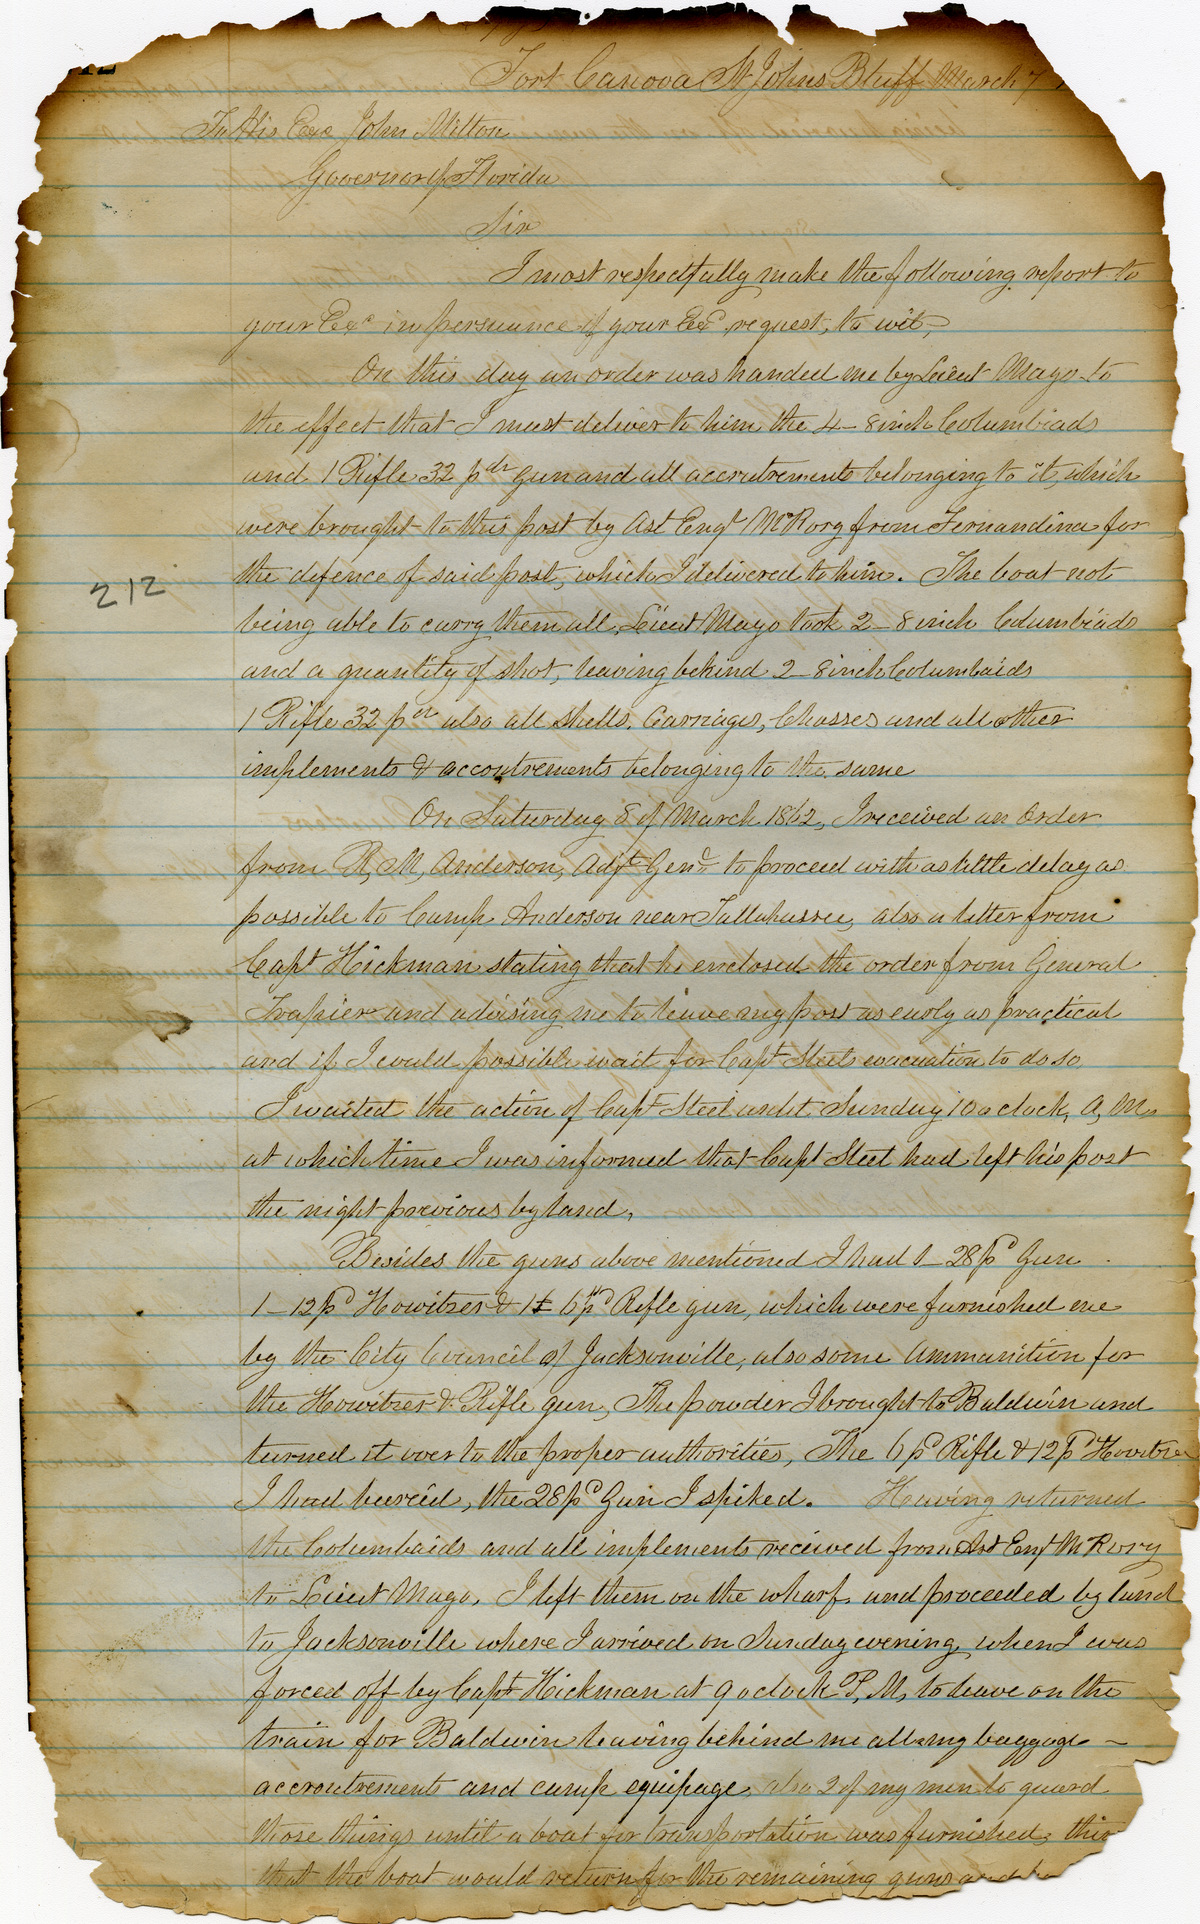 Fort Canova St Johns Bluff March 7
To His Exc John Milton
Governor of Florida
Sir
I most respectfully make the following report to
your Exc in persuance of your Exc request, to wit,
On this day an order was handed me by Lieut Mayo to
the effect that I must deliver to him the 4 - 8 inch Columbiads
and 1 Rifle 32 pdr gun and all accrutrements belonging to it, which
were brought to this post by Ast Engr McRory from Fernandina for
the defence of said post, which I delivered to him. The boat not
being able to carry them all, Lieut Mayo took 2 - 8 inch Columbiads
and a quantity of shot, leaving behind 2 - 8 inch Columbaids
1 Rifle 32 pdr also all shells, Carriages, Chasses and all other
implements & accoutrements belonging to the same
On Saturday 8 of March 1862, I received an Order
from R, M, Anderson, Adjt Genl to proceed with as little delay as
possible to Camp Anderson near Tallahassee, also a letter from
Capt Hickman stating that he enclosed the order from General
Trapier and advising me to leave my post as early as practical
and if I could possible wait for Capt Steel evacuation to do so,
I waited the action of Capt Steel until Sunday 10 oclock, A, M,
at which time I was informed that Capt Steel had left his post
the night previous by land,
Besides the guns above mentioned I had 1 - 28 pd Gun
1 - 12 pd Howitzer & 1 6 pd Rifle gun, which were furnished me
by the City Council of Jacksonville, also some Ammunition for
the Howitzer & Rifle gun, The powder I brought to Baldwin and
turned it over to the proper authorities, The 6 pd Rifle & 12 pd Howitze
I had beereid, the 28 pd Gun I spiked. Having returned
the Columbaids and all implements received from Ast Engr McRory
to Lieut Mayo, I left them on the wharf, and proceeded by land
to Jacksonville where I arrived on Sunday evening, when I was
forced off by Capt Hickman at 9 oclock P, M, to leave on the
train for Baldwin leaving behind me all my baggage -
accroutrements and camp equipage, also 2 of my men to guard
those things until a boat for transportation was furnished,
that the boat would return for the remaining guns and
212